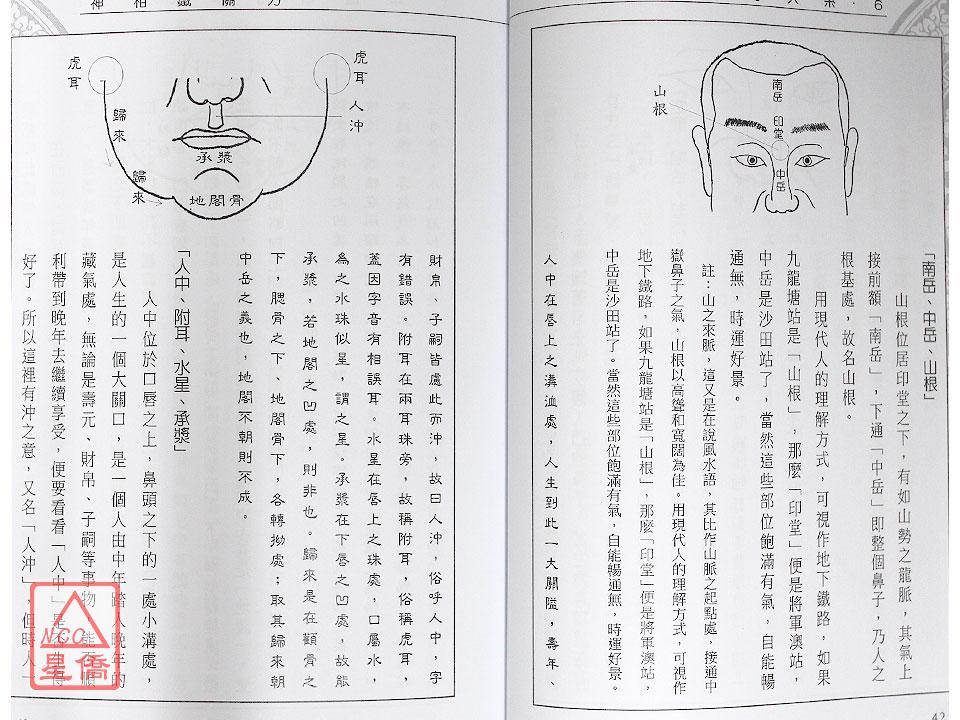 南岳
印堂
山根
中岳
「南岳、中岳、山根」
山根位居印堂之下，有如山勢之龍脈，其氣上
接前額「南岳」，下通「中岳」即整個鼻子，乃人之
根基處，故名山根。
用現代人的理解方式，可視作地下鐵路，如果
九龍塘站是「山根」，那麼「印堂」便是將軍澳站，
中岳是沙田站了，當然這些部位飽滿有氣，自能暢
通無，時運好景。
註：山之來脈，這又是在說風水語，其比作山脈之起點處，接通中
嶽鼻子之氣，山根以高聳和寬闊為佳。用現代人的理解方式，可視作
地下鐵路，如果九龍塘站是「山根」，那麼「印堂」便是將軍澳站，
中岳是沙田站了。當然這些部位飽滿有氣，自能暢通無，時運好景。
人中在唇上之溝洫處，人生到此一大關隘，壽年、
42
虎耳
人沖
虎耳
歸來
歸來
承漿
地閣骨
財帛、子嗣皆處此而沖，故曰人沖，俗呼人中，字
有錯誤。附耳在兩耳珠旁，故稱附耳，俗稱虎耳，
蓋因字音有相誤耳。水星在唇上之珠處，口屬水，
為之水珠似星，謂之星。承漿在下唇之凹處，故能
承漿，若地閣之凹處，則非也。歸來是在顴骨之
下，腮骨之下、地閣骨下，各轉拗處；取其歸來朝
中岳之義也，地閣不朝則不成。
「人中、附耳、水星、承漿」
人中位於口唇之上，鼻頭之下的一處小溝處，
是人生的一個大關口，是一個人由中年踏入晚年的
藏氣處，無論是壽元、財帛、子嗣等事物，能否順
利帶到晚年去繼續享受，便要看看「人中」是否生得
好了。所以這裡有沖之意，又名「人沖」，但時人一
NCC
星僑